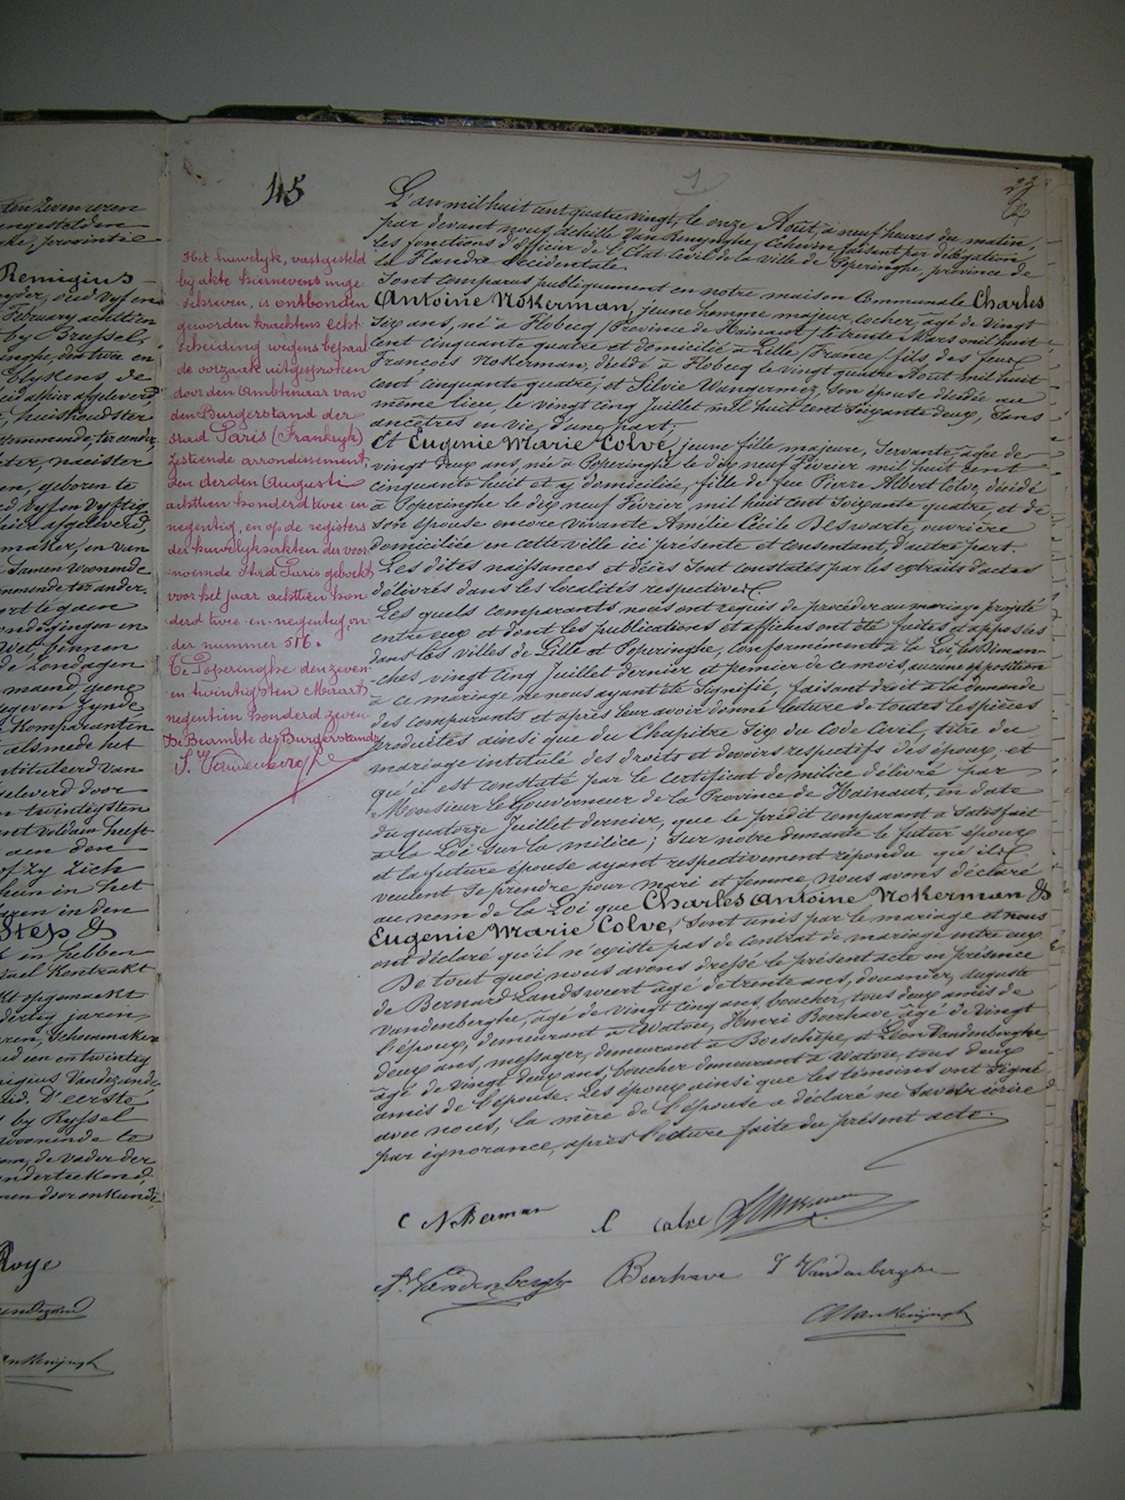 ten zeven uren
engestelden
ke, provintie
Remigius
yder, oud vyf en
February achttien
by Brussel,
inghe, den twee en
Blykens de
eid alhier afgeleverd
, huishoudster
ter, naaister
en, geboren te
maker, en van
Samen woonende
ort te gaen
ondigingen en
Wet binnen
de Zondagen
maend, geene
Komparanten
alsmede het
stitueerd van
geleverd door
n twintigsten
ant voldaen heeft
aen den
of zy zich
hun in het
aren in den
Step &
en hebben
ael Kontrakt
kt opgemaekt
dertig jaren
ren, Schoenmaker
ud een en twintig
igius Vandezande
ud. D'eerste
by Ryssel
woonende te
om, de vader der
ondertekend,
nen door onkunde
Roye
45
Het huwelyk, vastgesteld
by akte hiernevens inge-
schreven, is ontbonden
geworden krachtens echt-
scheiding wegens bepaal-
de oorzaak uitgesproken
door den Ambtenaar van
den Burgerstand der
stad Paris (Frankryk)
zestiende arrondissement,
den derden Augusti
achttien honderd twee en
negentig, en op de registers
der huwelyksakten der voor-
noemde stad Paris geboekt
voor het jaar achttien hon-
derd twee-en-negentig, on-
der nummer 516.
Te Poperinghe den zeven-
en twintigsten Maart
negentien honderd zeven.
De Beambte des Burgerstands,
1
23
L'an mil huit cent quatre vingt, le onze Août, à neuf heures du matin,
par devant nous Achille Van Renynghe, Echevin faisant par délégation
les fonctions d'officier de l'Etat Civil de la ville de Poperinghe, province de
la Flandre Occidentale
Sont comparus publiquement en notre maison Communale Charles
Antoine Nokerman, jeune homme majeur, cocher, âgé de vingt
six ans, né à Flobecq (Province de Hainaut) le trente Mars mil huit
cent cinquante quatre et domicilié à Lille (France) fils des feus
François Nokerman, décédé à Flobecq le vingt quatre Août mil huit
cent cinquante quatre, et Silvie Wangermez, son épouse décédée au
même lieu, le vingt cinq Juillet mil huit cent soixante deux, sans
ancêtres en vie, d'une part;
Et Eugenie Marie Colve, jeune fille majeure, servante, âgée de
vingt deux ans, née à Poperinghe le dix neuf Février mil huit cent
cinquante huit et y domiciliée, fille de feu Pierre Albert Colve, décédé
à Poperinghe le dix neuf Février, mil huit cent soixante quatre, et de
son épouse encore vivante Amélie Cécile Deswarte, ouvrière
domiciliée en cette ville ici présente et consentant, d'autre part.
Les dites naissances et décès sont constatés par les extraits d'actes
délivrés dans les localités respectives.
Les quels comparants nous ont requis de procéder au mariage projeté
entre eux et dont les publications et affiches ont été faites et apposées
dans les villes de Lille et Poperinghe, conformément à la Loi, les Diman-
ches vingt cinq Juillet dernier et premier de ce mois, aucune opposition
à ce mariage ne nous ayant été signifié, faisant droit à la demande
des comparants et après leur avoir donné lecture de toutes les pièces
produites ainsi que du Chapitre Six du Code Civil, titre du
mariage intitulé des droits et devoirs respectifs des époux, et
qu'il est constaté par le certificat de milice délivré par
Monsieur le Gouverneur de la Province de Hainaut, en date
du quatorze Juillet dernier, que le prédit comparant a satisfait
à la Loi sur la milice; Sur notre demande le futur époux
et la future épouse ayant respectivement répondu qu'ils
veulent se prendre pour mari et femme, nous avons déclaré
au nom de la Loi que Charles Antoine Nokerman &
Eugenie Marie Colve, sont unis par le mariage et nous
ont déclaré qu'il n'existe pas de contrat de mariage entre eux.
De tout quoi nous avons dressé le présent acte en présence
de Bernard Landswert âgé de trente ans, douanier, Auguste
Vandenberghe, âgé de vingt cinq ans, boucher, tous deux amis de
l'époux, demeurant à Watou, Henri Beerhave, âgé de vingt
deux ans, messager, demeurant à Boeschèpe, et Léon Vandenberghe,
âgé de vingt deux ans, boucher demeurant à Watou, tous deux
amis de l'épouse. Les époux ainsi que les témoins ont signé
avec nous, la mère de l'épouse a déclaré ne savoir écrire
par ignorance, après lecture faite du présent acte.
C Nokerman
E Colve
A. Vandenberghe
Beerhave
Vandenberghe
AVanRenynghe